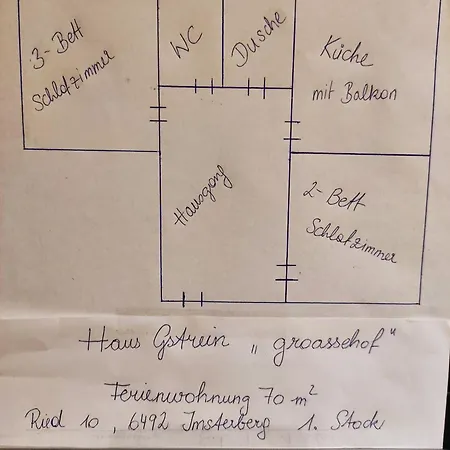 3-Bett
Schlafzimmer
WC
Dusche
Küche
mit Balkon
Hausgang
2-Bett
Schlafzimmer
Haus Gstrein „groassehof“
Ferienwohnung 70 m²
Ried 10, 6492 Imsterberg 1. Stock